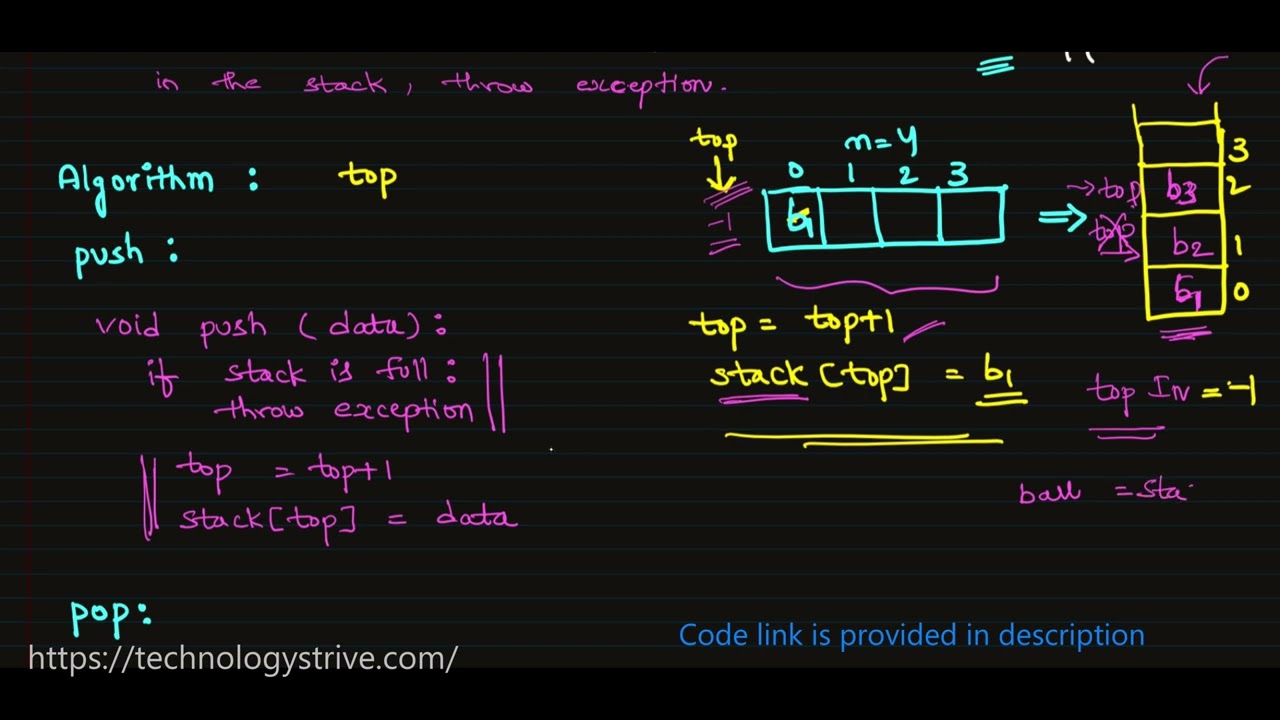 in the stack, throw exception.
Algorithm : top
push :
void push (data):
if stack is full:
throw exception
top = top+1
stack[top] = data
pop:
top
-1
n=4
0 1 2 3
b1
top = top+1
stack[top] = b1
3
→top b3 2
top b2 1
b1 0
top = -1
ball = sta
Code link is provided in description
https://technologystrive.com/